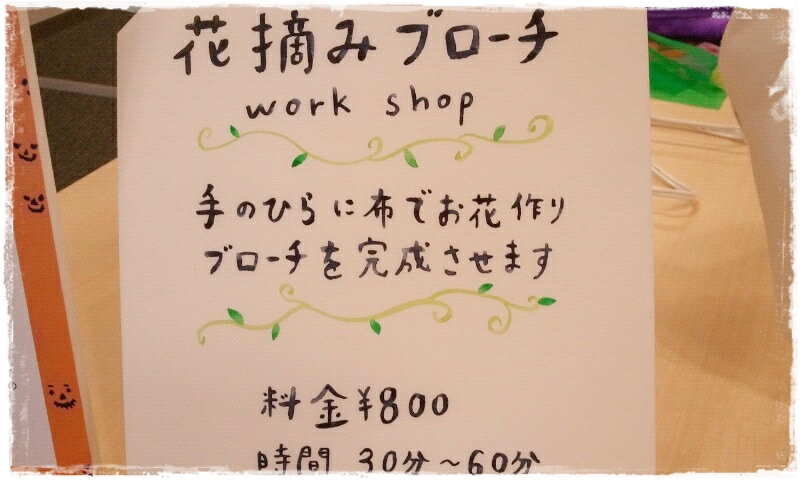 花摘みブローチ
work shop
手のひらに布でお花作り
ブローチを完成させます
料金¥800
時間 30分～60分